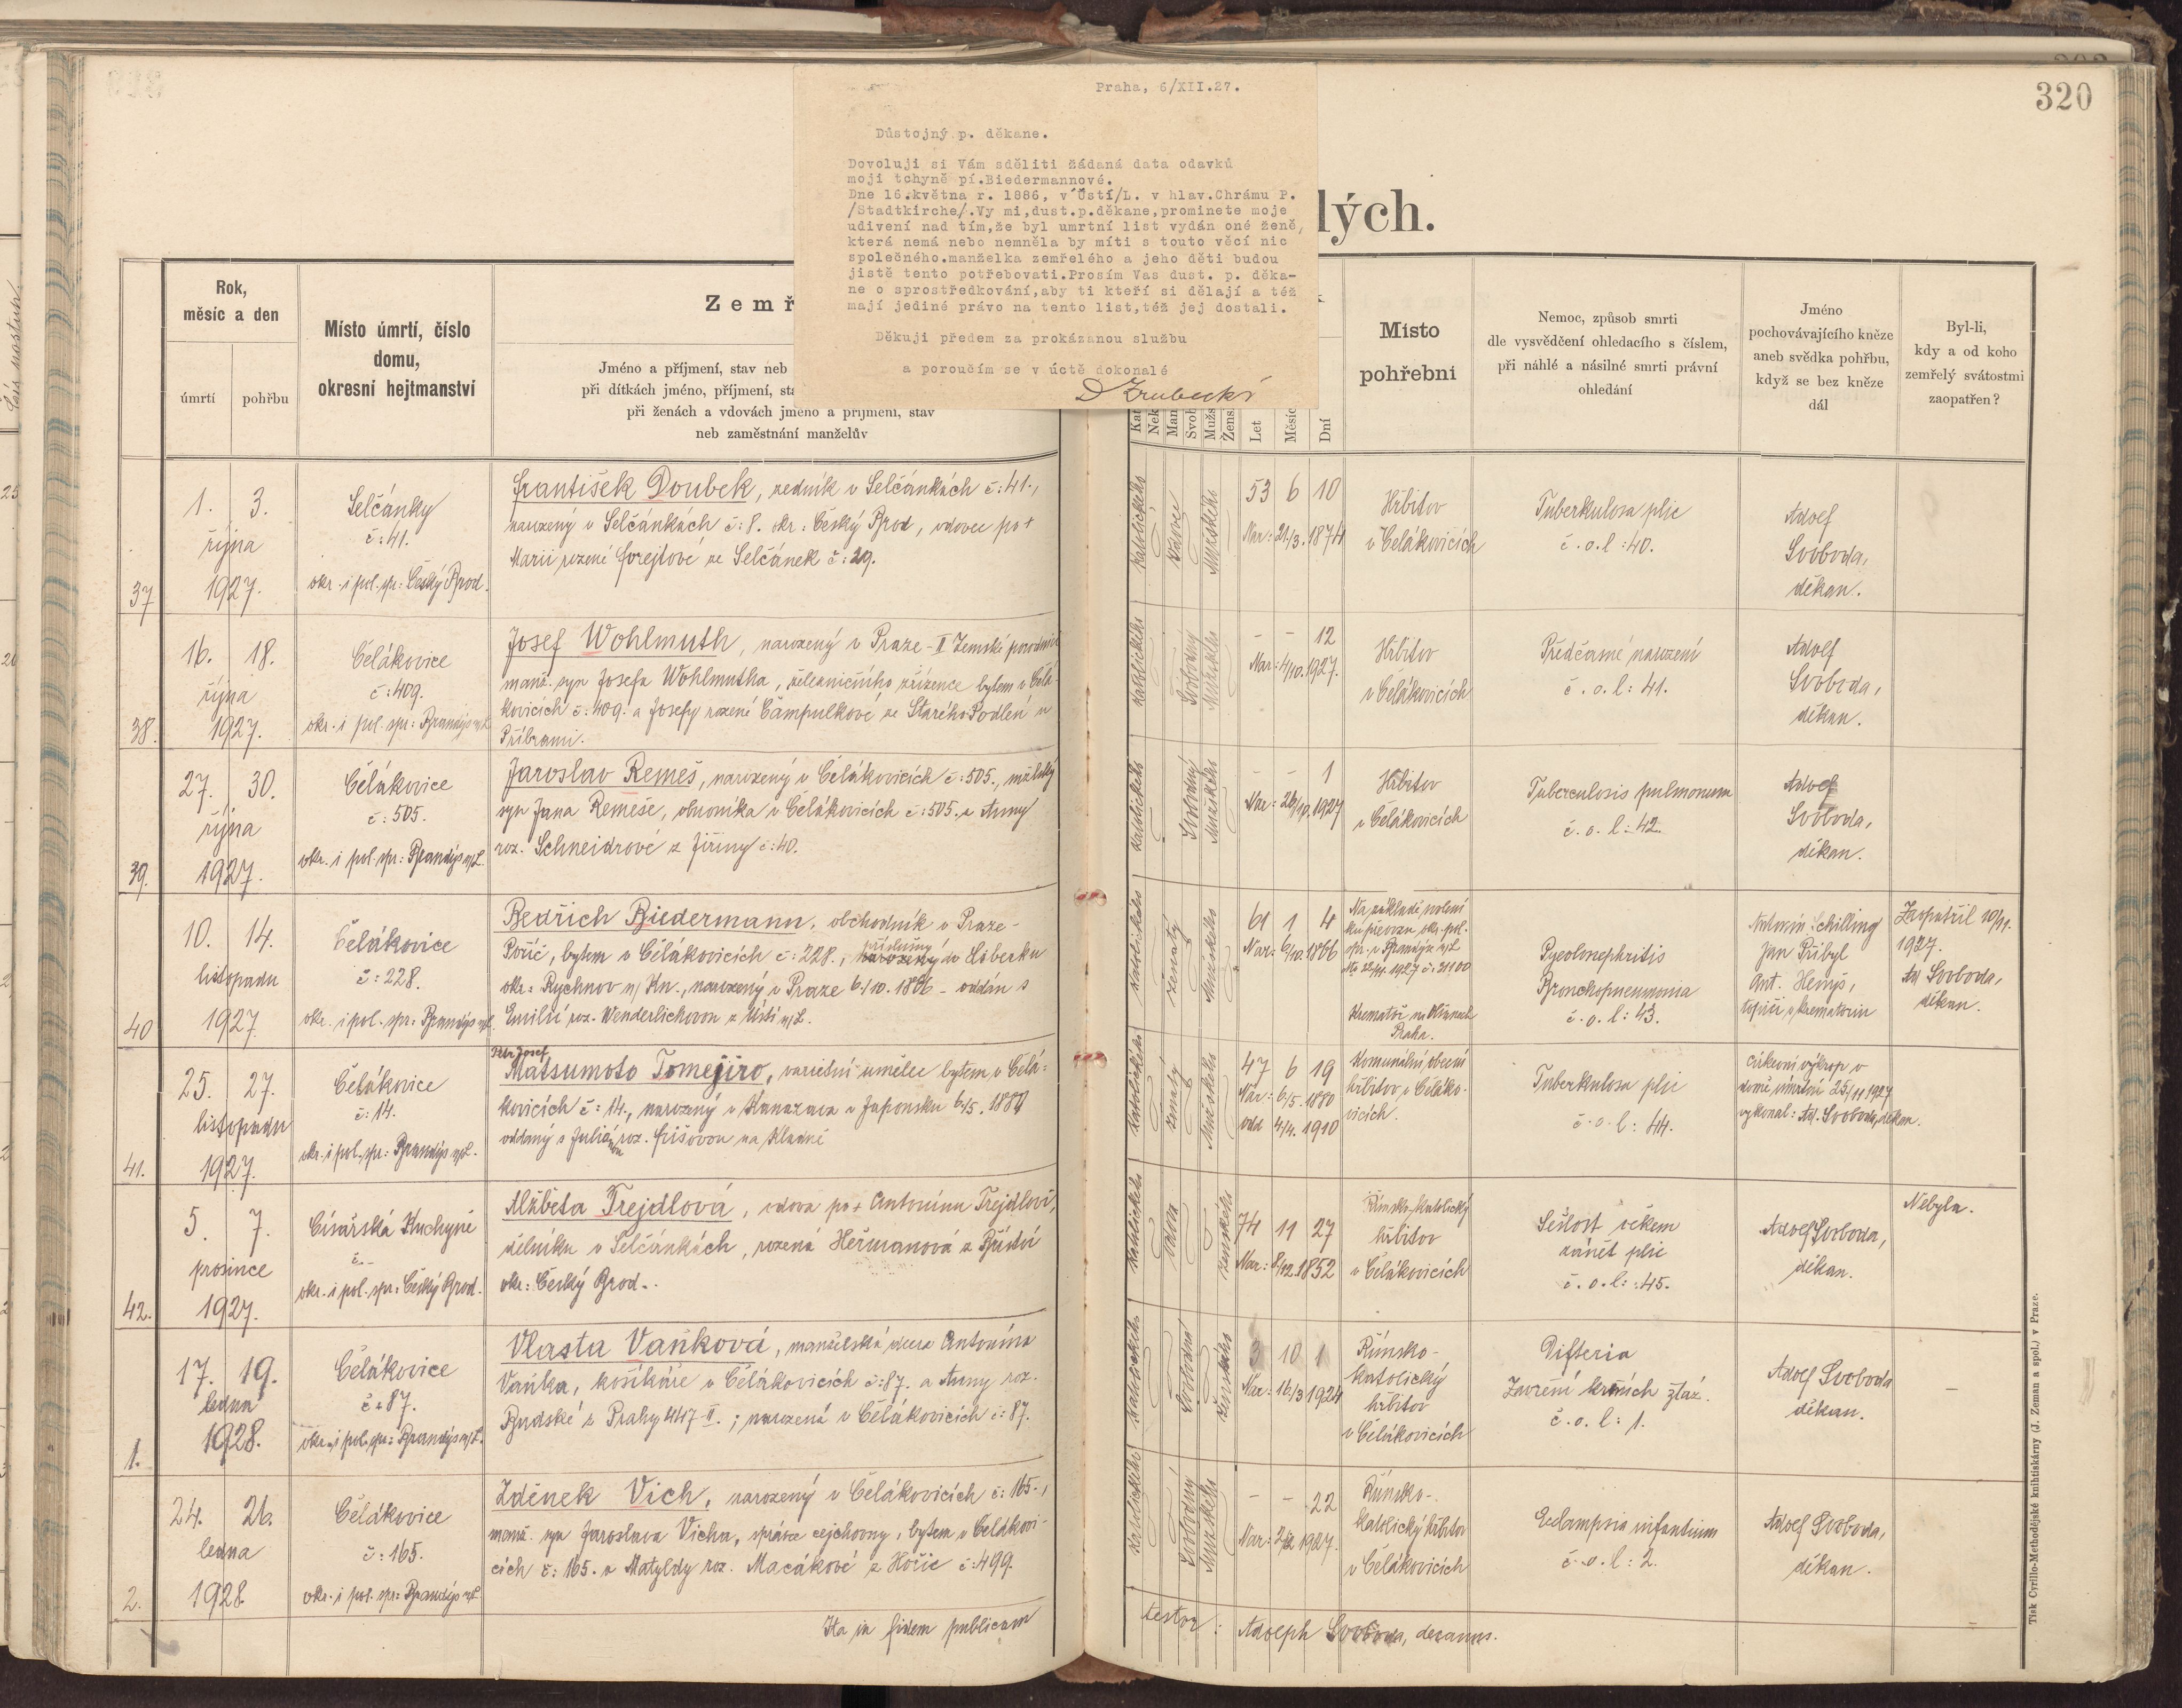 320
Praha, 6/XII.27.
Důstojný p. děkane.
Dovoluji si Vám sděliti žádaná data odavků
moji tchyně pí.Biedermannové.
Dne 16.května r. 1886, v Ústí/L. v hlav.Chrámu P.
/Stadtkirche/.Vy mi,dust.p.děkane,prominete moje
udivení nad tím,že byl umrtní list vydán oné ženě,
která nemá nebo nemněla by míti s touto věcí nic
společného.manželka zemřelého a jeho děti budou
jistě tento potřebovati.Prosím Vas dust. p. děka-
ne o sprostředkování,aby ti kteří si dělají a též
mají jediné právo na tento list,též jej dostali.
Děkuji předem za prokázanou službu
a poroučím se v úctě dokonalé
lých.
Rok,
měsíc a den
úmrtí
pohřbu
Místo úmrtí, číslo
domu,
okresní hejtmanství
Zemř
Jméno a příjmení, stav neb
při dítkách jméno, příjmení, sta
při ženách a vdovách jméno a příjmení, stav
neb zaměstnání manželův
Kat
Nek
Man
Svob
Mužs
Žens.
Let
Měsíc
Dní
Místo
pohřební
Nemoc, způsob smrti
dle vysvědčení ohledacího s číslem,
při náhlé a násilné smrti právní
ohledání
Jméno
pochovávajícího kněze
aneb svědka pohřbu,
když se bez kněze
dál
Byl-li,
kdy a od koho
zemřelý svátostmi
zaopatřen?
37
1. 3.
října
1927.
Selčánky
č:41.
okr. i pol. spr: Český Brod.
František Doubek, zedník v Selčánkách č:41.,
narozený v Selčánkách č:8. okr: Český Brod, vdovec po +
Marii rozené Forejtové ze Selčánek č:29.
katolického
Vdovec
Mužského
53 6 10
Nar: 21/3. 1874
Hřbitov
v Čelákovicích
Tuberkulosa plic
č.o.l:40.
Adolf
Svoboda,
děkan.
38.
16. 18.
října
1927.
Čelákovice
č:409.
okr. i pol. spr: Brandýs n/L
Josef Wohlmuth, narozený v Praze-II Zemské porodnici
manž. syn Josefa Wohlmutha, železničního zřízence bytem v Čelá-
kovicích č:409. a Josefy rozené Čampulkové ze Starého Podlesí u
Příbrami.
katolického
Svobodný
Mužského
- - 12
Nar: 4/10. 1927.
Hřbitov
v Čelákovicích
Předčasné narození
č.o.l:41.
Adolf
Svoboda,
děkan.
39.
27. 30.
října
1927.
Čelákovice
č:505.
okr. i pol. spr: Brandýs n/L.
Jaroslav Remeš, narozený v Čelákovicích č:505., manželský
syn Jana Remeše, obuvníka v Čelákovicích č:505. a Anny
roz. Schneidrové z Jiřiny č:40.
katolického
Svobodný
Mužského
- - 1
Nar: 26/10. 1927
Hřbitov
v Čelákovicích
Tuberculosis pulmonum
č.o.l:42.
Adolf
Svoboda,
děkan.
40
10. 14.
listopadu
1927.
Čelákovice
č:228.
okr. i pol. spr: Brandýs n/L.
Bedřich Biedermann, obchodník v Praze-
Poříč, bytem v Čelákovicích č:228., narozený příslušný do Liberku
okr: Rychnov n/Kn., narozený v Praze 6./10. 1866 - oddán s
Emilií roz. Wenderlichovou z Ústí n/L.
katolického
ženatý
Mužského
61 1 4
Nar: 6/10. 1866
Na základě povolení
ku převozu okr. pol.
spr. v Brandýse n/L
Krematoř na Olšanech
Praha.
Pyelonephritis
Bronchopneumonia
č.o.l:43.
Antonín Schilling
Jan Přibyl
Ant. Henyš,
topiči v krematoriu
Zaopatřil 10/11.
1927.
Ad. Svoboda,
děkan.
41.
25. 27.
listopadu
1927.
Čelákovice
č:14.
okr. i pol. spr: Brandýs n/L.
Petr Josef
Matsumoto Tomejiro, varietní umělec bytem v Čelá-
kovicích č:14., narozený v Kanazava v Japonsku 6./5. 1880
oddaný s Julií roz. Frišovou na Kladně
katolického
ženatý
Mužského
47 6 19
Nar: 6/5. 1880
odd 4/4. 1910
Komunální obecní
hřbitov v Čeláko-
vicích.
Tuberkulosa plic
č.o.l:44.
Církevní výkrop v
domě úmrtí 25/11 1927
vykonal: Ad. Svoboda, děkan.
42.
5. 7.
prosince
1927.
Císařská Kuchyně
č.-
okr. i pol. spr: Český Brod.
Alžběta Trejdlová, vdova po + Antonínu Trejdlovi,
dělníku v Selčánkách, rozená Heřmanová z Bříství
okr: Český Brod.
katolického
vdova
ženského
74 11 27
Nar: 8/12. 1852
Římsko-katolický
hřbitov
v Čelákovicích
Sešlost věkem
zánět plic
č.o.l:45.
Adolf Svoboda,
děkan.
Nebyla.
1.
17. 19.
ledna
1928.
Čelákovice
č:87.
okr. i pol. spr: Brandýs n/L.
Vlasta Vaňková, manželská dcera Antonína
Vaňka, košíkáře v Čelákovicích č:87. a Anny roz.
Budské z Prahy 447-II.; narozená v Čelákovicích č:87.
katolického
Svobodná
ženského
3 10 1
Nar: 16./3 1924
Římsko-
katolický
hřbitov
v Čelákovicích
Difteria
Zavření krčních žlaz.
č.o.l:1.
Adolf Svoboda
děkan.
-
2.
24. 26.
ledna
1928.
Čelákovice
č:165.
okr. i pol. spr: Brandýs n/L
Zdeněk Vich, narozený v Čelákovicích č:165.,
manž. syn Jaroslava Vicha, správce cejchovny, bytem v Čelákovi-
cích č:165. a Matyldy roz. Macákové z Hořic č:499.
katolického
Svobodný
Mužského
- - 22
Nar: 2/12 1927.
Římsko-
katolický hřbitov
v Čelákovicích
Eclampsia infantium
č.o.l:2.
Adolf Svoboda,
děkan.
Ita in fidem publicam
testor: Adolph Svoboda, decanus.
Tisk Cyrillo-Methodějské knihtiskárny (J. Zeman a spol.) v Praze.